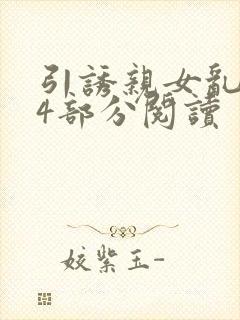 引誘親女亂
4部分閱讀
姣紫玉-